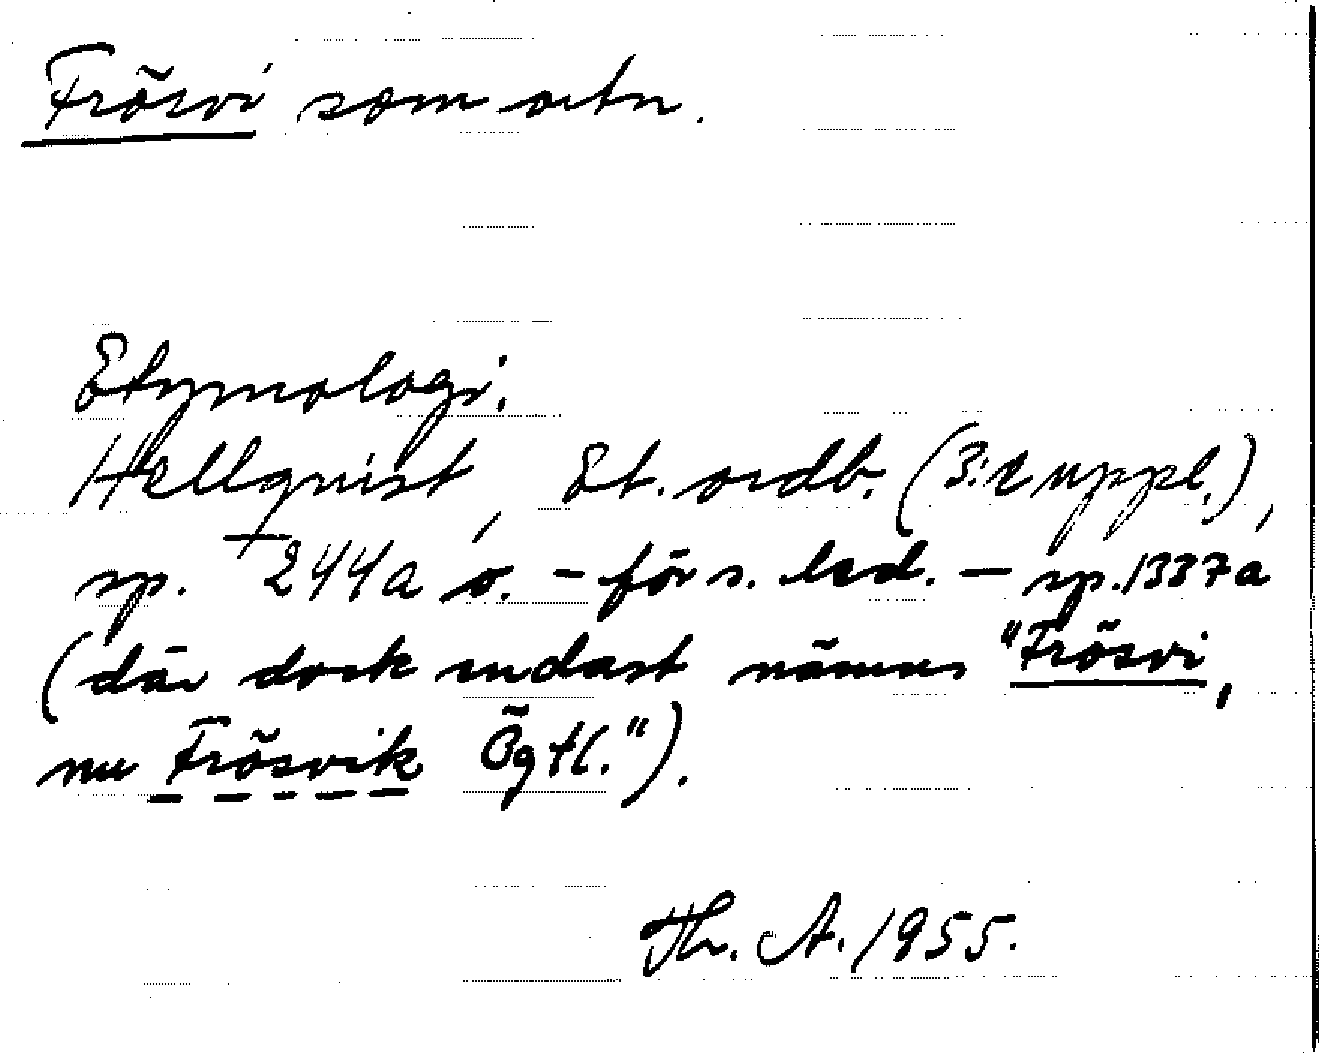 Frösvi som ortn.
Etymologi.
Hellquist, Et. ordb. (3:e uppl.),
sp. 244a o. - för s. led. - sp. 1337a
(där dock endast nämnes "Frösvi,
nu Frösvik Ögtl.").
Th. A. 1955.